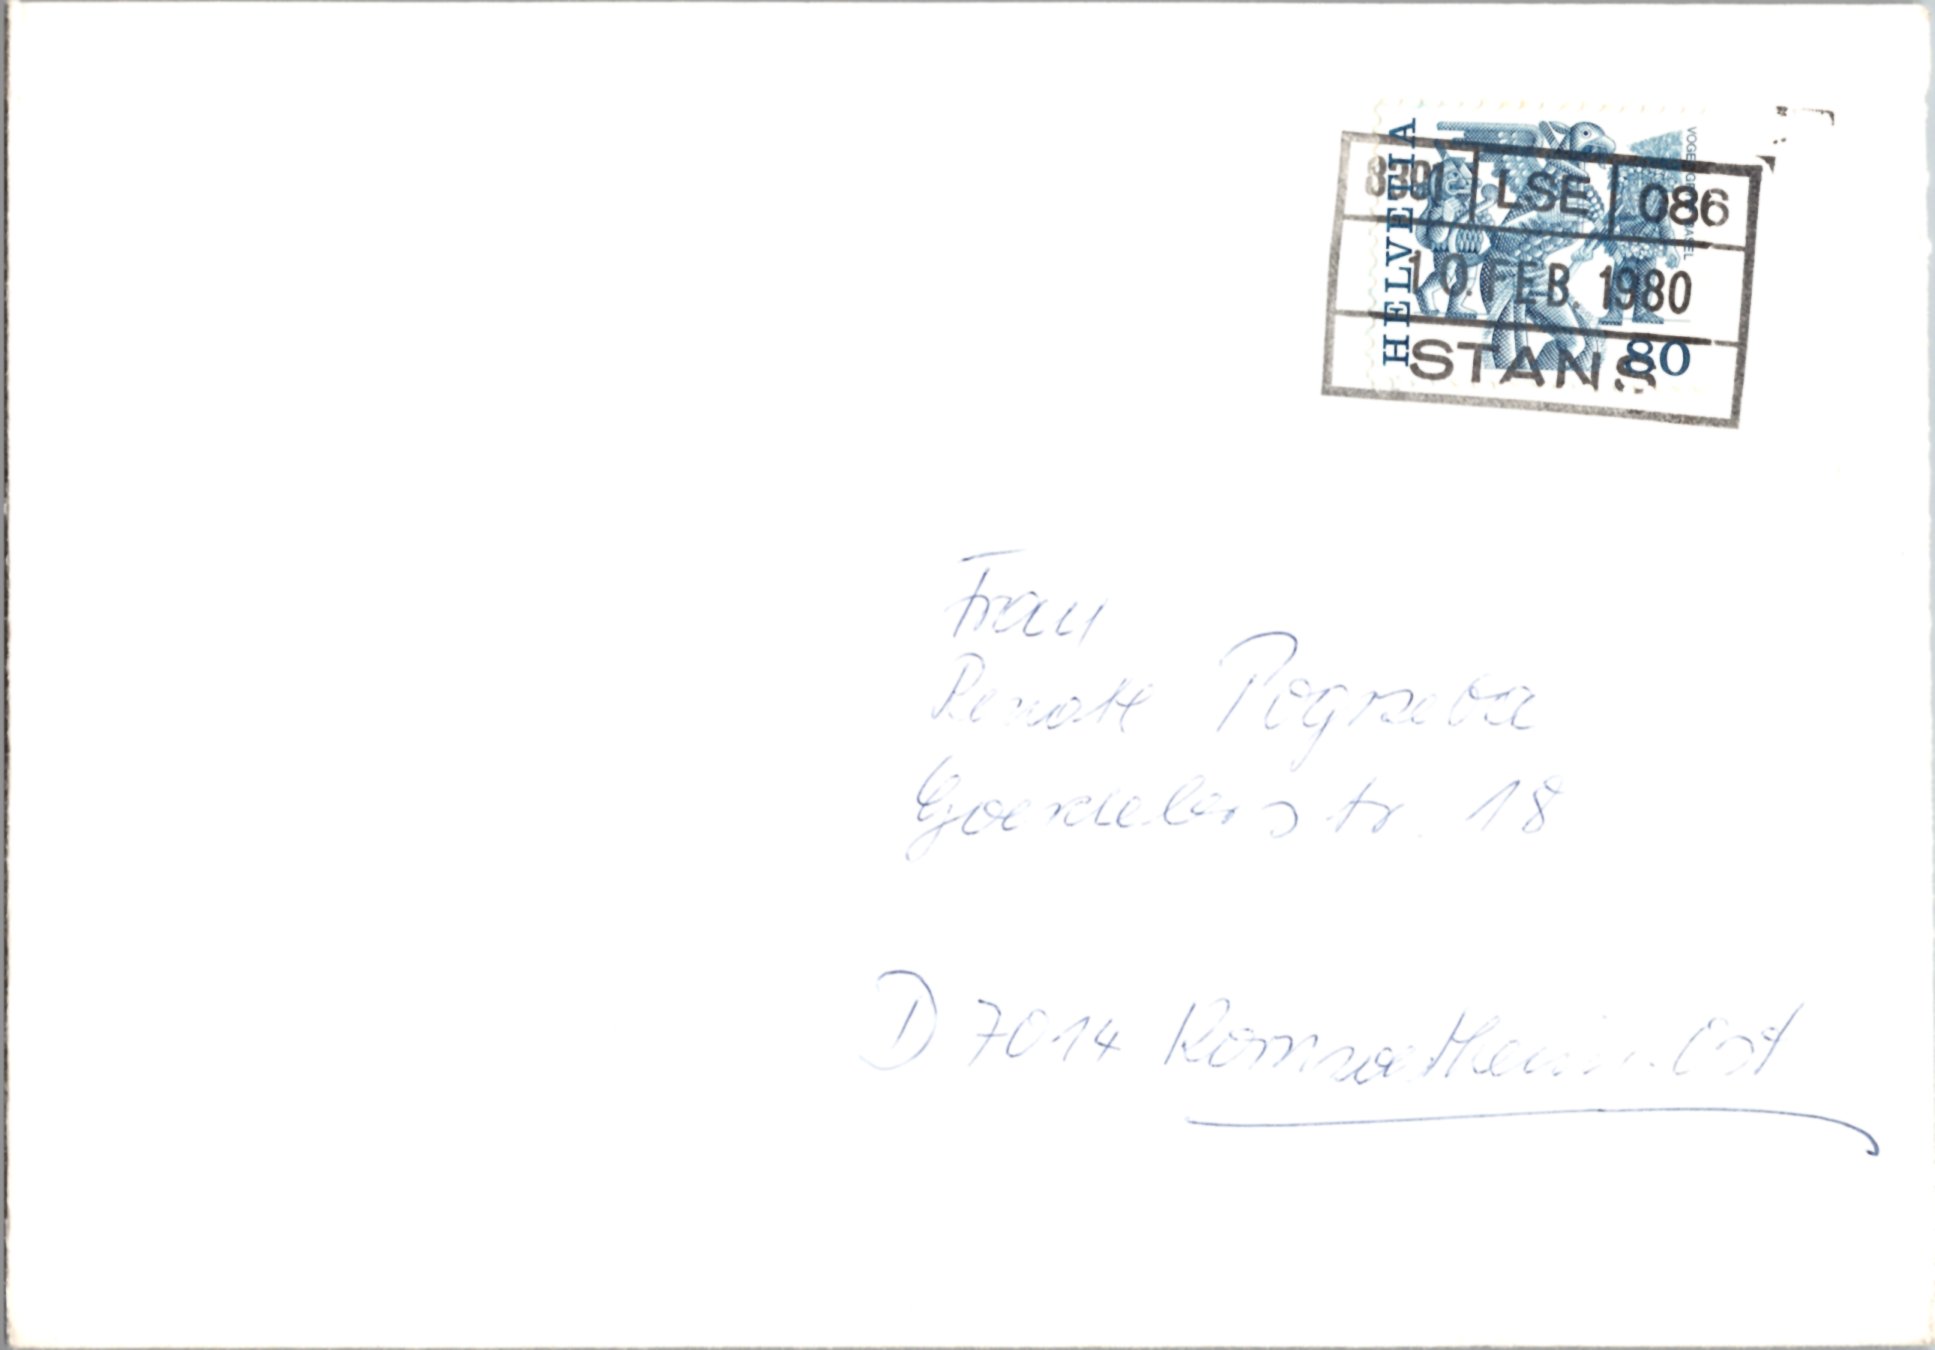 HELVETIA
VOGEL GRYFF BASEL
80
8301 LSE 086
10. FEB. 1980
STANS
Frau
Renate Pogrzeba
Goerdelerstr. 18
D 7014 Kornwestheim-Ost